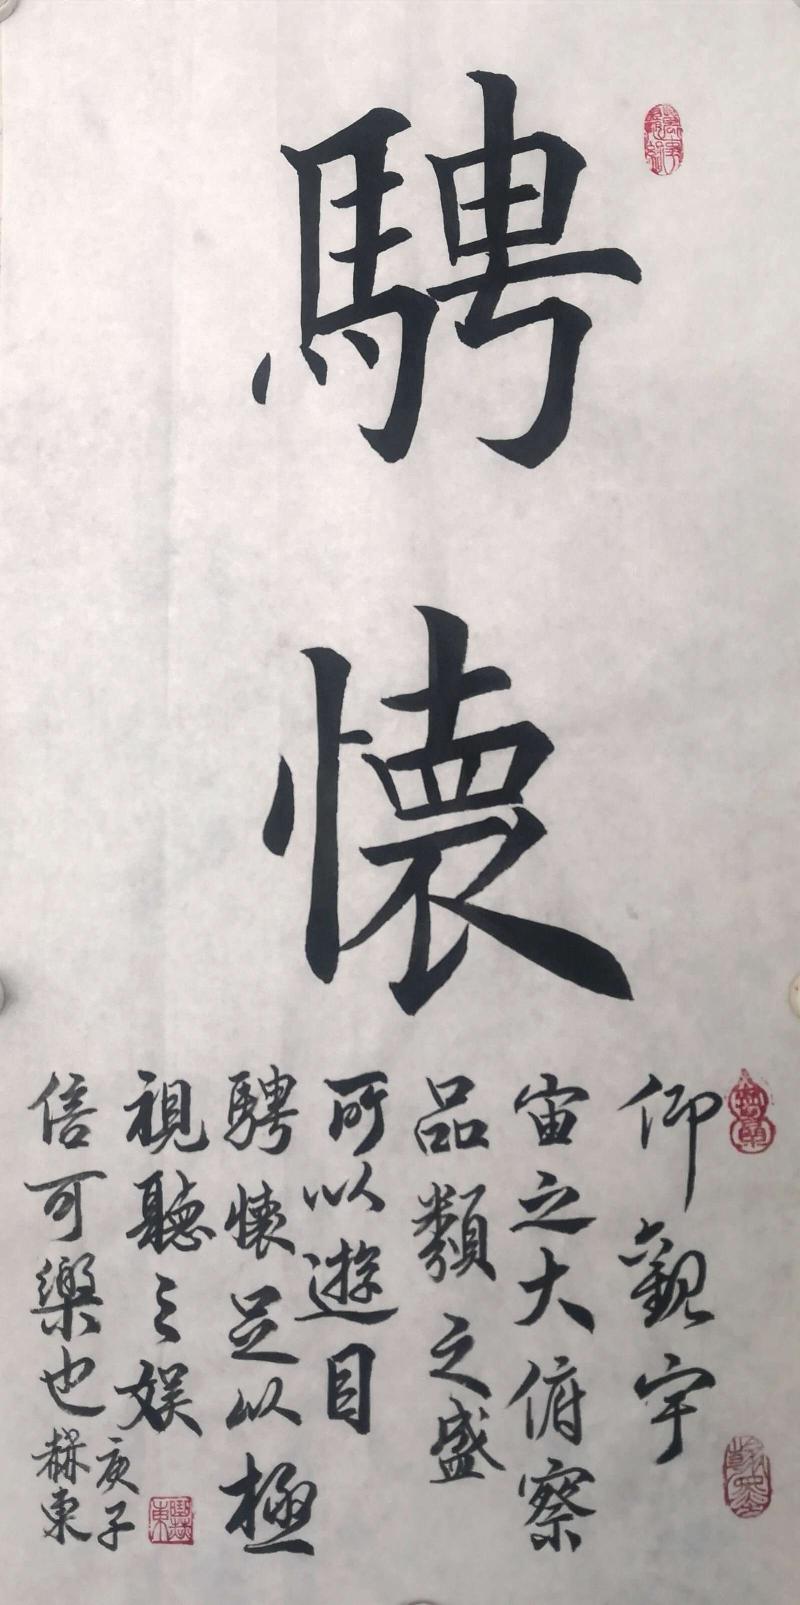 騁
懷
仰觀宇
宙之大俯察
品類之盛
所以遊目
騁懷足以極
視聽之娱
信可樂也
庚子
赫東